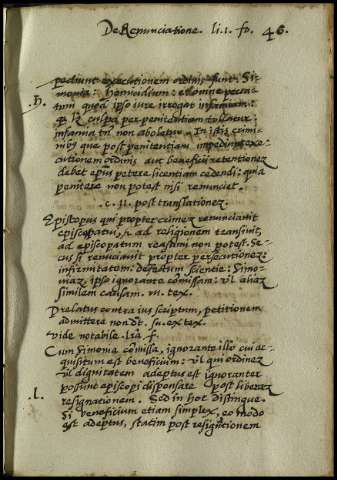 De Renunciatione. li. 1. fo. 46.
pediunt executionem ordinis sunt. Si-
monia: homicidium: et omne pecca-
.h. tum quod ipso iure irrogat infamiam:
culpa per penitentiam tollatur
infamia tn non aboletur. In istis crimi-
nibus que post penitentiam impediunt exe-
cutionem ordinis aut beneficii retentionez
debet epus petere licentiam cedendi: quia
penitere non potest nisi renunciet.
.c. 11. post translationez.
Episcopus qui propter crimez renunciavit
episcopatum, ad religionem transivit,
ad episcopatum reassumi non potest. Se-
cus si renunciavit propter persecutionez:
infirmitatem: defectum scientie: Simo-
niaz, ipso ignorante comissam: vl aliaz
similem causam. in. tex.
Prelatus contra ius scriptum, petitionem
admittere non dt. in. ex. tex.
vide notabile. lra f.
Cum Simonia comissa, ignorante illo cui ac-
quisitum est beneficium: vl qui ordinez
vl dignitatem adeptus est ignoranter
possunt episcopi dispensare post liberaz
.i. resignationem. Sed in hoc distingue.
Si beneficium etiam simplex, eo modo
est adeptus, statim post resignationem